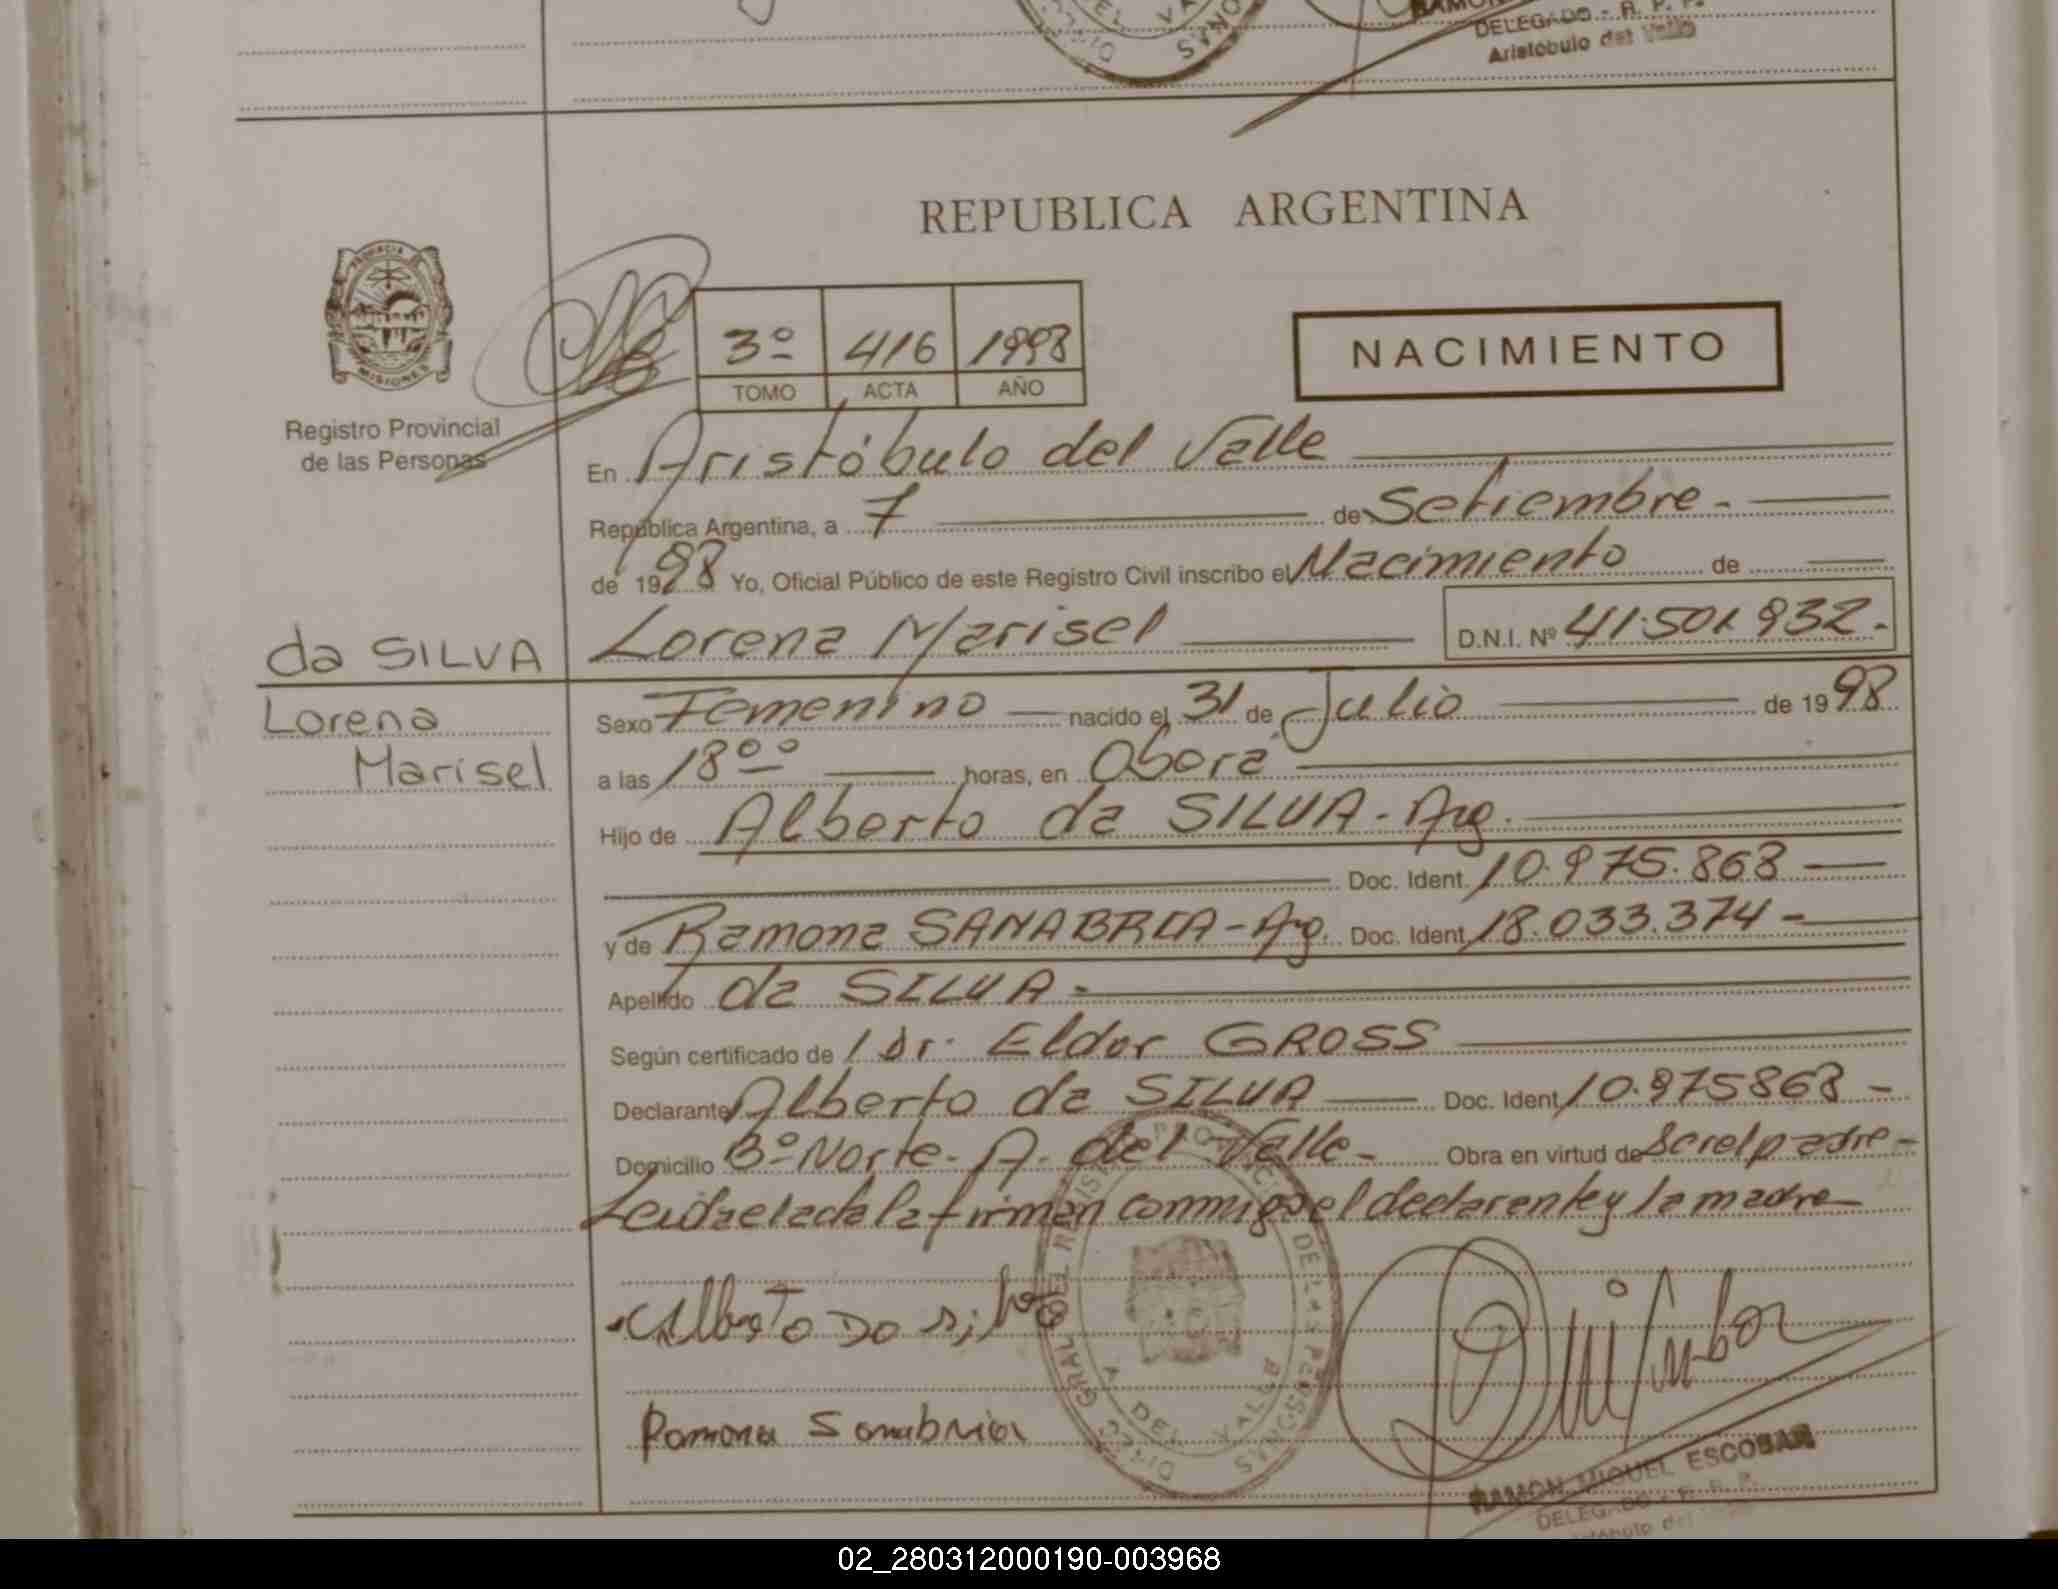 DELEGADO - R. P. P.
Aristóbulo del Valle
REPUBLICA ARGENTINA
PROVINCIA
MISIONES
Registro Provincial
de las Personas
3º 416 1998
TOMO ACTA AÑO
NACIMIENTO
En Aristóbulo del Valle
República Argentina, a 7 de Setiembre -
de 1998 Yo, Oficial Público de este Registro Civil inscribo el Nacimiento de
da SILVA
Lorena Marisel D.N.I. Nº 41.501.932.-
Lorena
Marisel
Sexo Femenino nacido el 31 de Julio de 1998
a las 18ºº horas, en Oberá
Hijo de Alberto da SILVA - Arg.
Doc. Ident. 10.975.868
y de Ramona SANABRIA - Arg. Doc. Ident. 18.033.374 -
Apellido da SILVA -
Según certificado de l Dr. Eldor GROSS
Declarante Alberto da SILVA Doc. Ident. 10.975868 -
Domicilio Bº Norte - A. del Valle - Obra en virtud de ser el padre -
Leida el acta la firman conmigo el declarante y la madre
Alberto Da silva
Ramona Sanabria
DIREC. GRAL. DEL REGISTRO PROVINCIAL DE LAS PERSONAS
A. DEL VALLE
RAMON MIGUEL ESCOBAR
DELEGADO - R. P. P.
Aristóbulo del
02_280312000190-003968